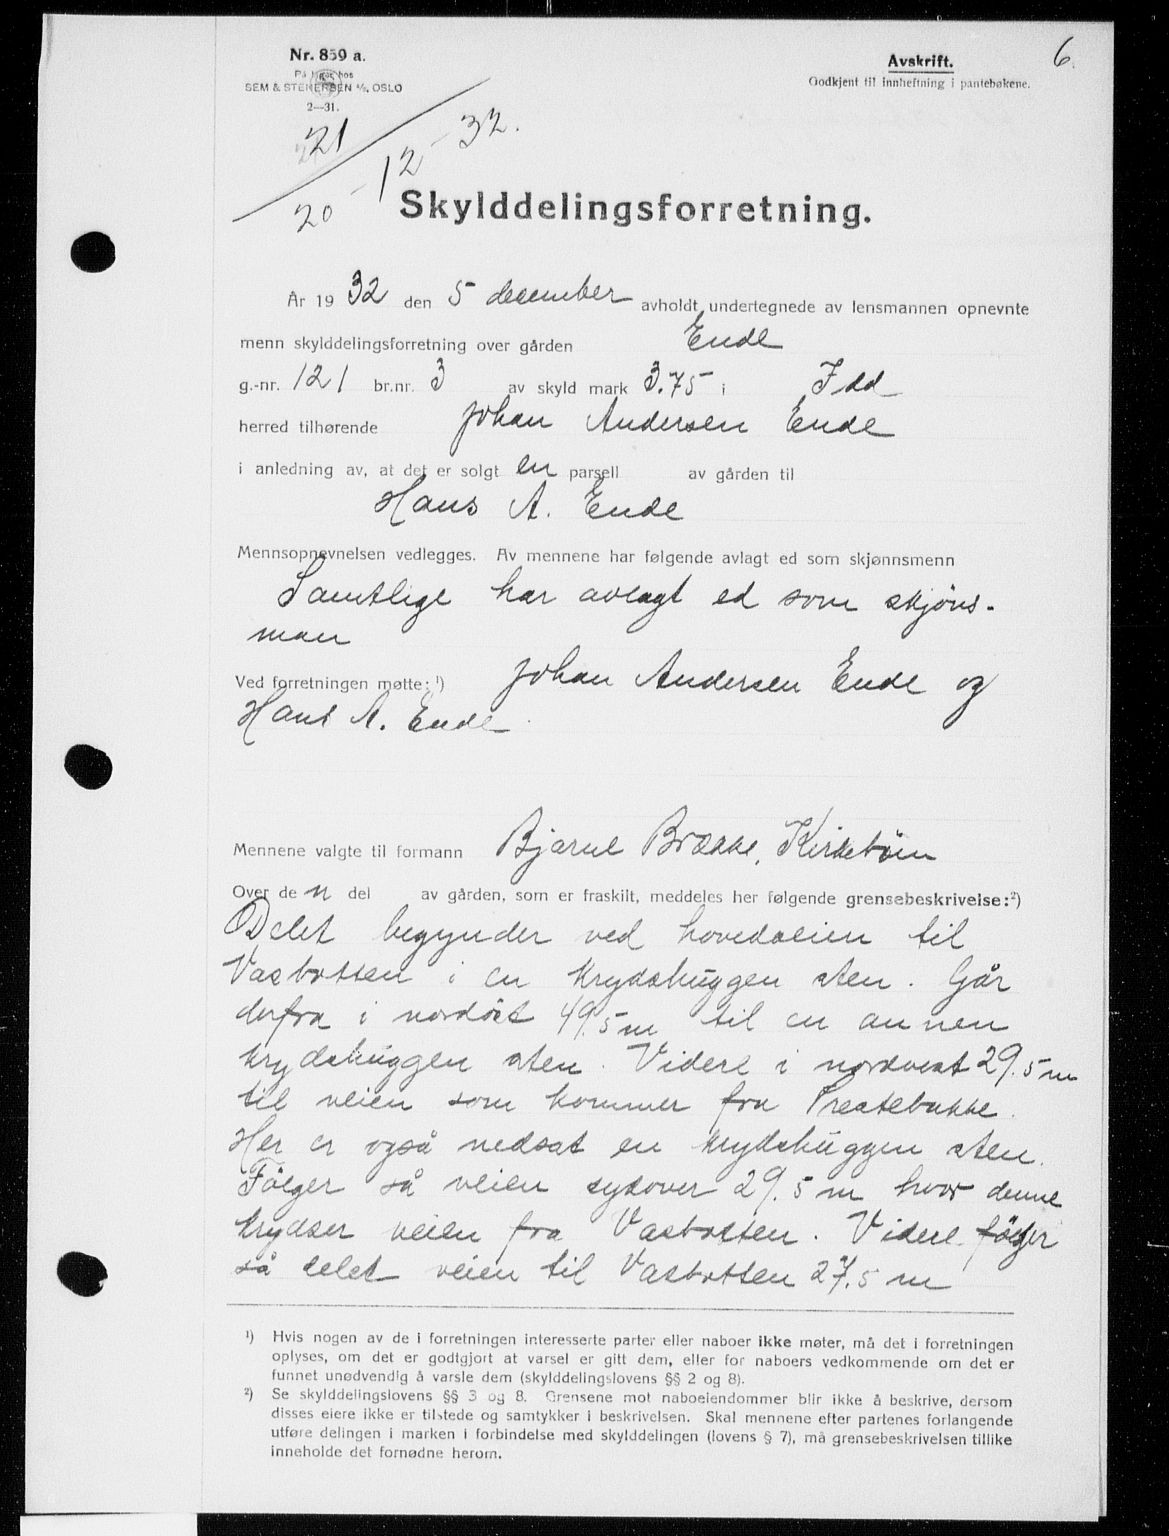 6.
Nr. 859 a.
På lager hos
SEM & STENERSEN A/S, OSLO
2—31.
Avskrift.
Godkjent til innheftning i pantebøkene.
21
20 - 12 - 32.
Skylddelingsforretning.
År 1932 den 5 december avholdt undertegnede av lensmannen opnevnte
menn skylddelingsforretning over gården Ende
g.-nr. 121 br.nr. 3 av skyld mark 3.75 i Idd
herred tilhørende Johan Andersen Ende
i anledning av, at det er solgt en parsell av gården til
Hans A. Ende
Mennsopnevnelsen vedlegges. Av mennene har følgende avlagt ed som skjønnsmenn
Samtlige har avlagt ed som skjöns-
men
Ved forretningen møtte: ¹) Johan Andersen Ende og
Hans A. Ende
Mennene valgte til formann Bjarne Brække, Kirkeböen
Over den del av gården, som er fraskilt, meddeles her følgende grensebeskrivelse: ²)
Delet begynder ved hovedveien til
Vasbotten i en krydshuggen sten. Går
derfra i nordöst 49.5 m til en annen
krydshuggen sten. Videre i nordvest 29.5 m
til veien som kommer fra Prestebakke.
Her er også nedsat en krydshuggen sten.
Fölger så veien sydover 29.5 m hvor denne
krydser veien fra Vasbotten. Videre fölger
så delet veien til Vasbotten 27.5 m
¹) Hvis nogen av de i forretningen interesserte parter eller naboer ikke møter, må det i forretningen
oplyses, om det er godtgjort at varsel er gitt dem, eller for naboers vedkommende om det er
funnet unødvendig å varsle dem (skylddelingslovens §§ 2 og 8).
²) Se skylddelingslovens §§ 3 og 8. Grensene mot naboeiendommer blir ikke å beskrive, dersom
disses eiere ikke er tilstede og samtykker i beskrivelsen. Skal mennene efter partenes forlangende
utføre delingen i marken i forbindelse med skylddelingen (lovens § 7), må grensebeskrivelsen tillike
inneholde det fornødne herom.